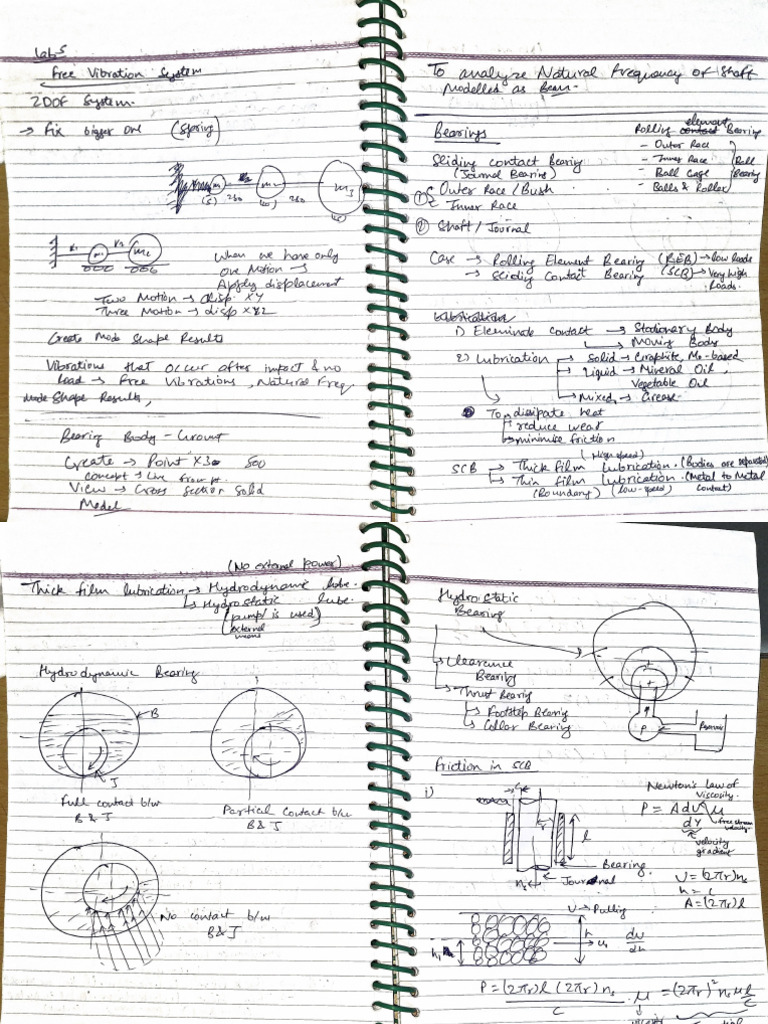 Lab 5
Free Vibration System
2DOF System.
→ Fix bigger one (Spring)
m1 m2 m3
(5) 250 (10) 250
K1 m1 K2 m2
When we have only
one Motion →
Apply displacement
Two Motion → disp. XY
Three Motion → disp XYZ
Create Mode Shape Results
Vibrations that occur after impact & no
load → Free Vibrations, Natural Freq
Mode Shape Results,
Bearing Body - Ground
Create → Point X3 500
Concept → Line from pt.
View → Cross Section Solid
Model
To analyze Natural Frequency of Shaft
Modelled as Beam.
Bearings
Rolling element contact Bearing
- Outer Race
- Inner Race
- Ball Cage
- Balls & Roller
Ball Bearing
Sliding contact Bearing
(Journal Bearing)
① Outer Race / Bush
Inner Race
② Shaft / Journal
Case → Rolling Element Bearing (REB) → low loads
→ Sliding Contact Bearing (SCB) → Very high
loads.
Lubrication
1) Eleminate contact → Stationary Body
→ Moving Body
2) Lubrication → Solid → Graphite, Mo-based
→ Liquid → Mineral Oil,
Vegetable Oil
→ Mixed → Grease.
To dissipate heat
→ reduce wear
→ minimise friction
(High speed)
SCB → Thick film lubrication. (Bodies are separated)
→ Thin film lubrication. (Metal to Metal
(Boundary) (low-speed) contact)
(No external power)
Thick film lubrication → Hydrodynamic lube.
→ Hydrostatic lube.
(pump is used)
(external means)
Hydrodynamic Bearing
B
J
Full contact b/w
B & J
Partial Contact b/w
B & J
No contact b/w
B & J
Hydrostatic
Bearing
→ Clearance
Bearing
→ Thrust Bearing
→ Footstep Bearing
→ Collar Bearing
P
Reservoir
Friction in SCB
i)
c
r
l
Bearing.
Journal
ns
Newton's law of
viscosity.
P = A du/dy μ
free stream
velocity.
velocity
gradient
U = (2πr)ns
h = c
A = (2πr)l
U → Pulling
h
h1
u1
du/dh
P = (2πr)l (2πr)ns / c . μ = (2πr)² ns μ l/c